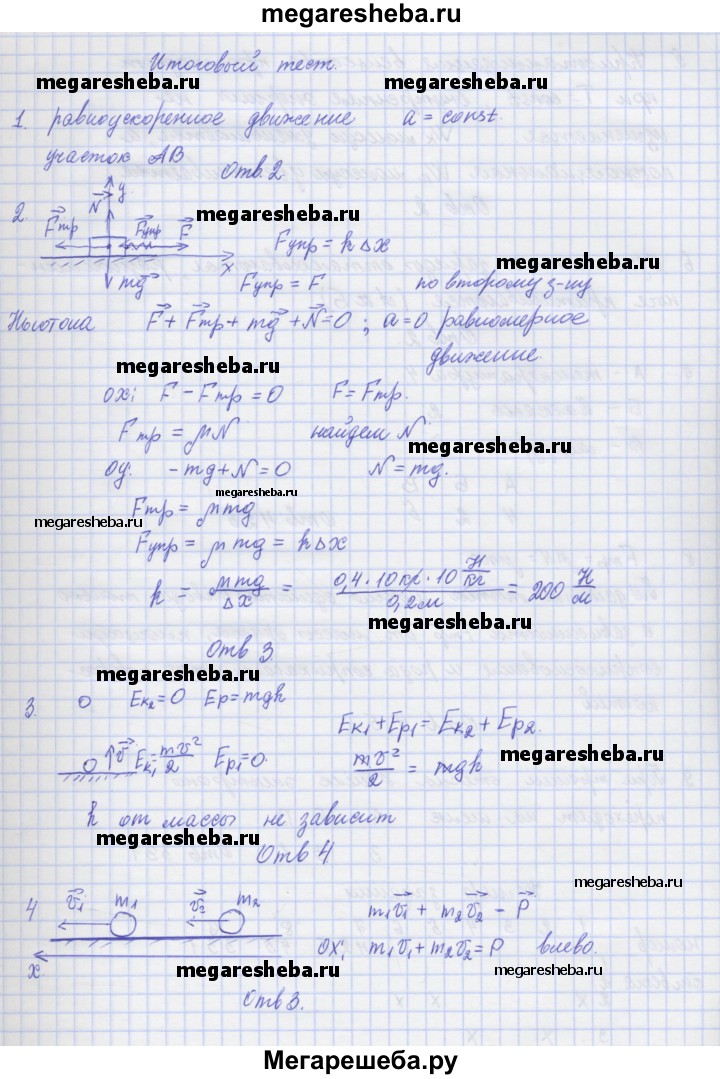 megaresheba.ru
Итоговый тест.
megaresheba.ru megaresheba.ru
1. равноускоренное движение a = const.
участок АВ Отв. 2.
2. N y
Fтр Fупр F megaresheba.ru
Fупр = kΔx megaresheba.ru
x
mg Fупр = F по второму з-ну
Ньютона F + Fтр + mg + N = 0 ; a = 0 равномерное
движение.
megaresheba.ru
ОХ: F − Fтр = 0 F = Fтр.
Fтр = μN найдем N megaresheba.ru
ОУ: − mg + N = 0 N = mg.
megaresheba.ru
Fтр = μmg
megaresheba.ru
Fупр = μmg = kΔx
k = μmg/Δx = 0,4·10кг·10 Н/кг / 0,2м = 200 Н/м
megaresheba.ru
Отв 3.
megaresheba.ru
3. Eк2 = 0 Ep = mgh
Eк1 + Ep1 = Eк2 + Ep2.
v Eк1 = mv²/2 Ep1 = 0. mv²/2 = mgh megaresheba.ru
h от массы не зависит
megaresheba.ru
Отв 4
megaresheba.ru
4 v1 m1 v2 m2 m1v1 + m2v2 − P
ОХ: m1v1 + m2v2 = P влево.
x megaresheba.ru megaresheba.ru
Отв 3.
Мегарешеба.ру